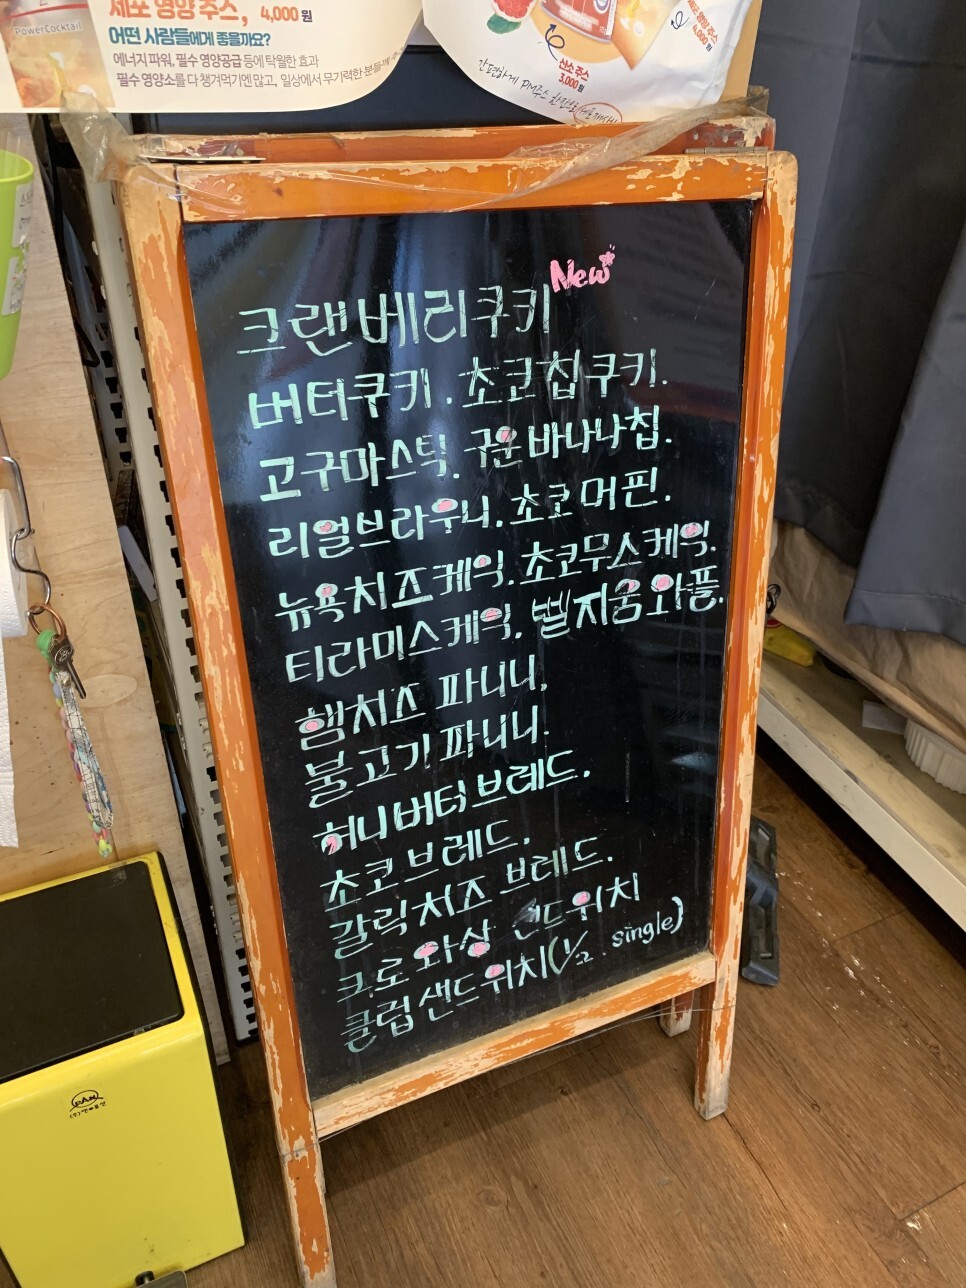 세포 영양 주스, 4,000원
PowerCocktail
어떤 사람들에게 좋을까요?
에너지 파워, 필수 영양공급 등에 탁월한 효과
필수 영양소를 다 챙겨먹기엔 많고, 일상에서 무기력한 분들께
4,000원
산소 주스
3,000원
간편하게 PM주스 한잔으로
New
크랜베리쿠키
버터쿠키. 초코칩쿠키.
고구마스틱. 구운바나나칩.
리얼브라우니. 초코머핀.
뉴욕치즈케익. 초코무스케익.
티라미스케익. 삘지움와플.
햄치즈 파니니.
불고기파니니.
허니버터브레드.
초코브레드.
갈릭치즈 브레드.
크로와상 샌드위치
클럽샌드위치(1/2. single)
PAN